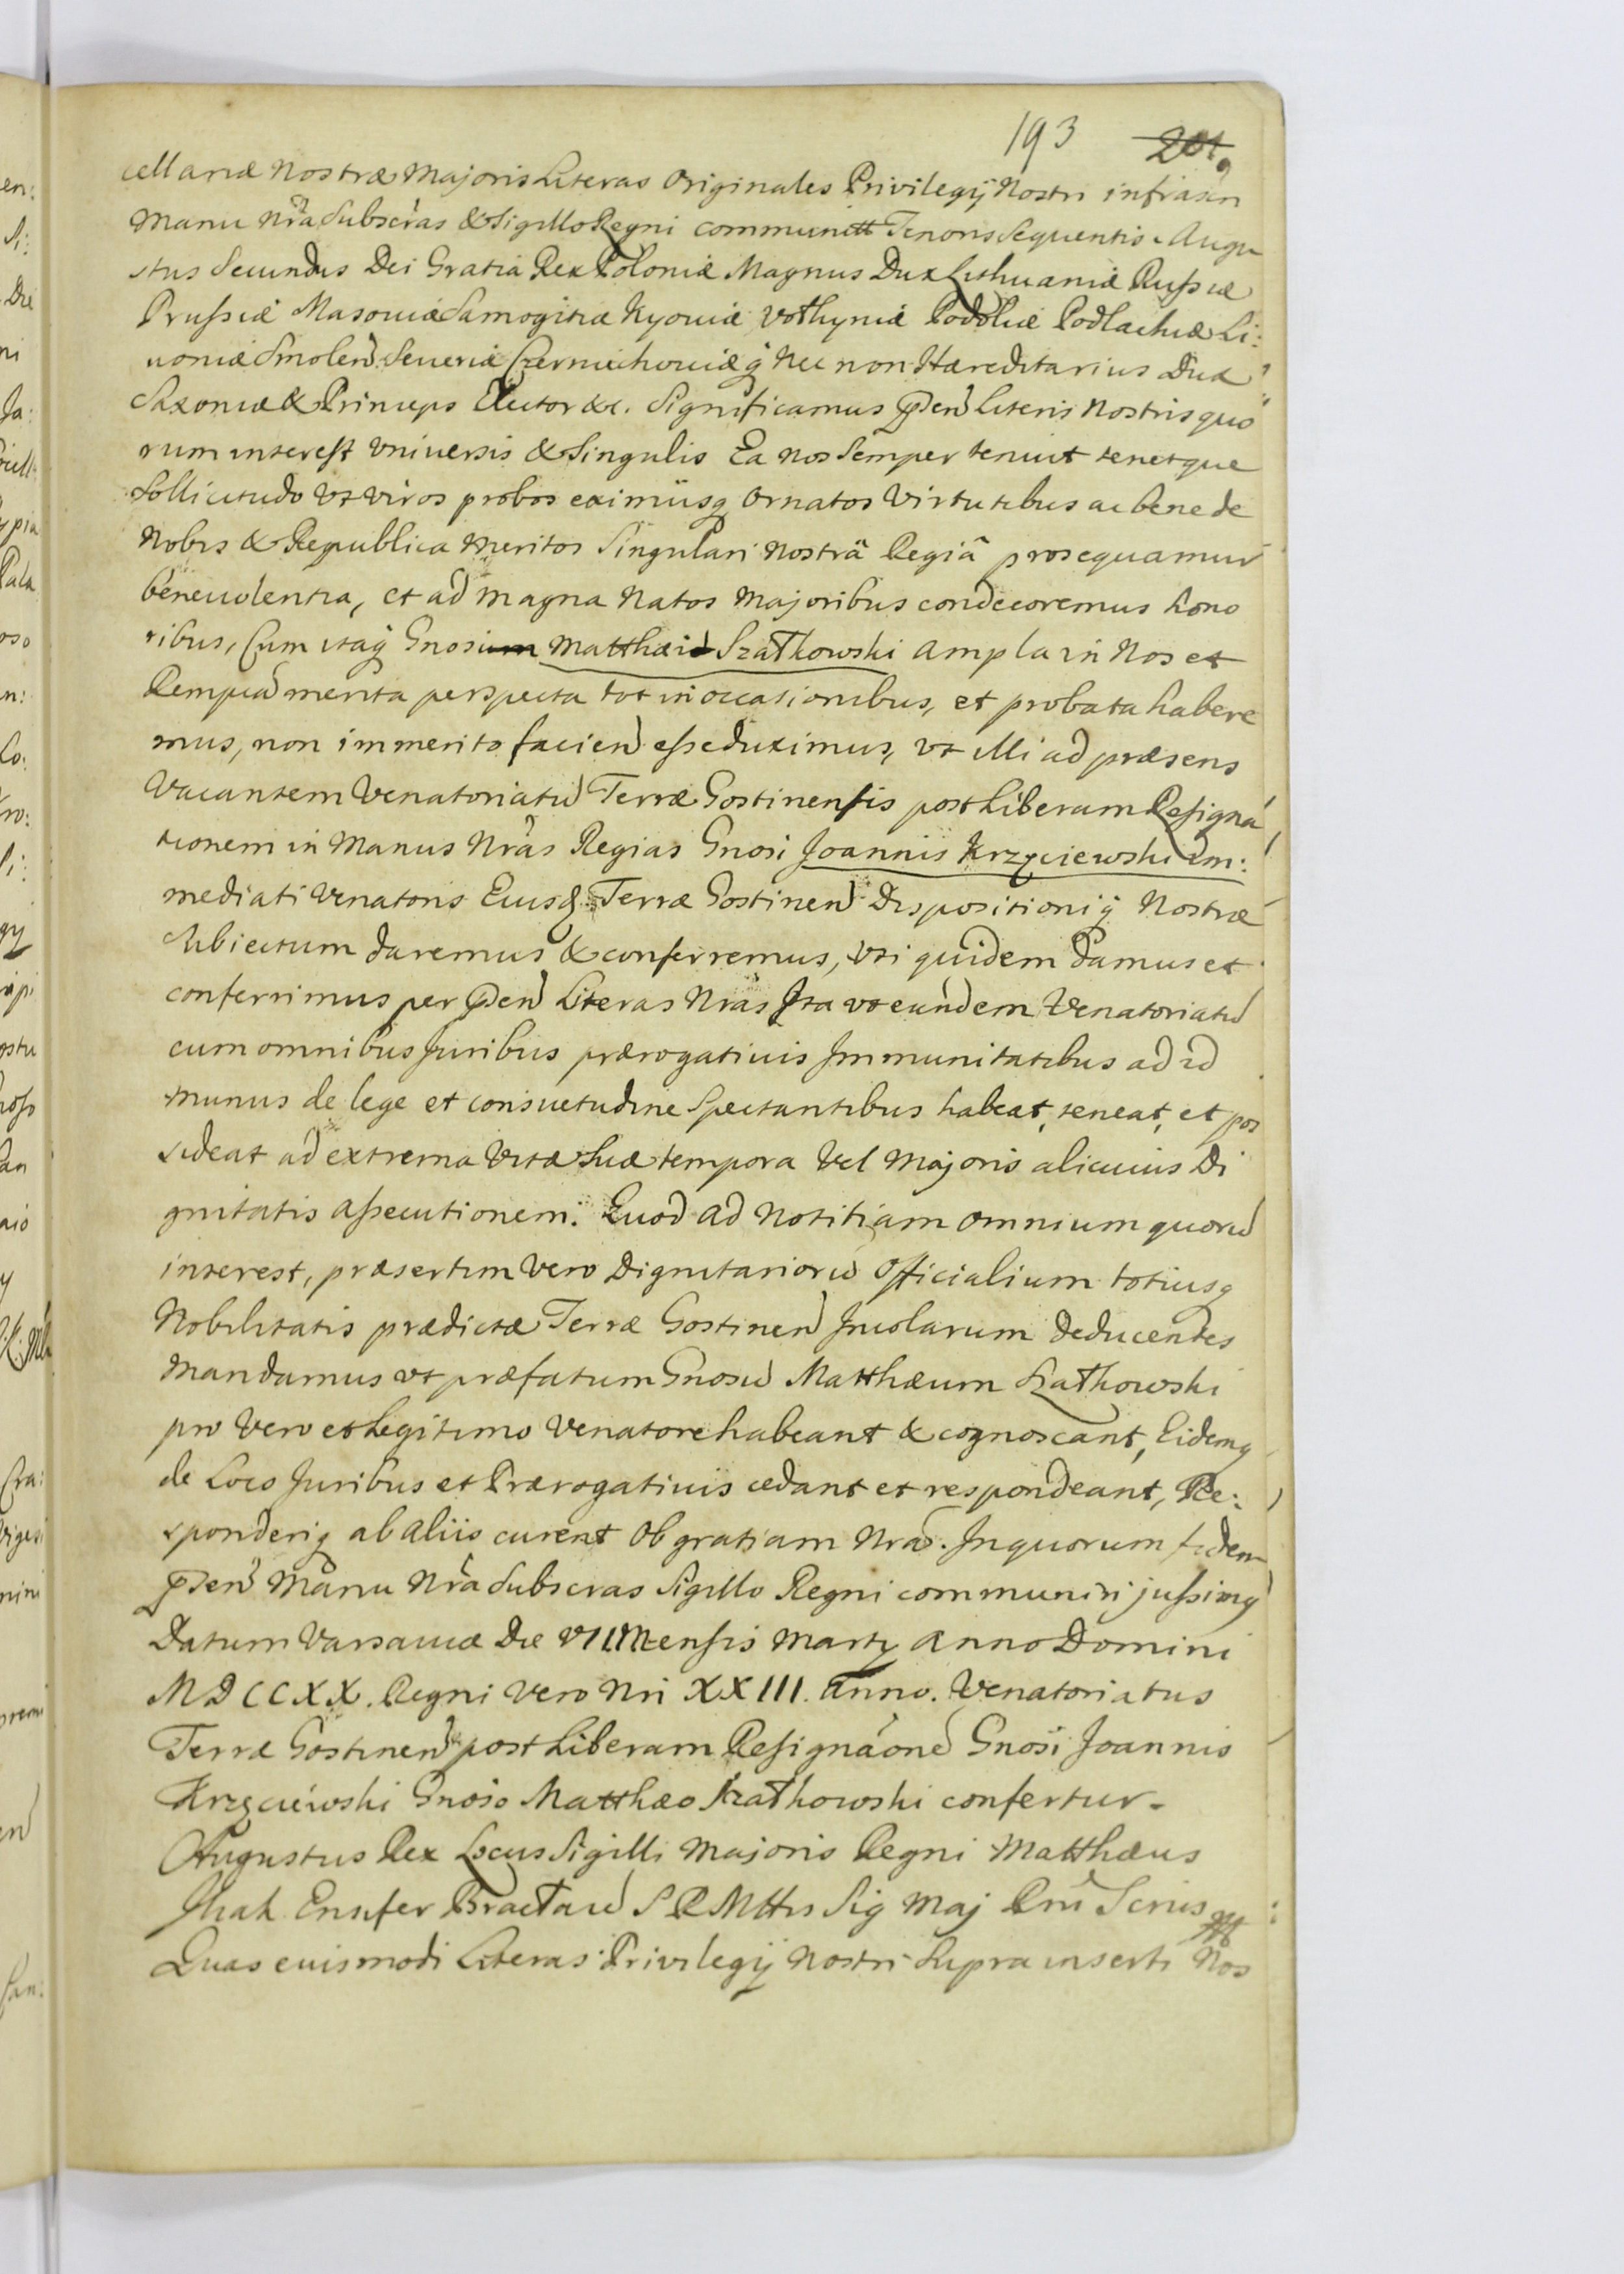 193 201.
cellariæ Nostræ Majoris Literas Originales Privilegÿ Nostri infrascri
Manu Nrã Subscras & Sigillo Regni communitt Tenoris Sequentis. Augu
stus Secundus Dei Gratia Rex Poloniæ Magnus Dux Lithuaniæ Russiæ
Prussiæ Masoviæ Samogitiæ Kyoviæ Vołhyniæ Podoliæ Podlachiæ Li:
voniæ Smolen Severiæ Czerniechoviæq Nec non Hæreditarius Dux
Saxoniæ & Princeps Elector &c. Significamus pden Literis Nostris quo
rum interest Universis & Singulis Ea nos Semper tenuit tenetque
Sollicitudo Vt viros probos eximiisq Ornatos Virtutibus ac bene de
Nobis & Republica Meritos Singulari Nostrâ Regiâ prosequamur
benevolentia, et ad magna Natos Majoribus condecoremus hono
ribus, Cum itaq Gnosium Matthæi Szatkowski ampla in Nos et
Rempcã merita perspecta tot in occasionibus, et probata habere
mus, non immerito facien esse duximus, vt illi ad præsens
Vacantem Venatoriatu Terræ Gostinensis post Liberam Resigna
tionem in Manus Nrãs Regias Gnosi Joannis Krzyciewski im:
mediati Venatoris Eiusq Terræ Gostinen Dispositioniq Nostræ
Subiectum daremus & conferremus, vti quidem Damus et
conferrimus per pden Literas Nras Ita vt eundem Venatoriatu
cum omnibus Juribus prærogativis Immunitatibus ad id
munus de lege et consuetudine Spectantibus habeat, teneat, et pos
sideat ad extrema Vitæ Suæ tempora Vel Majoris alicuius Di
gnitatis assecutionem. Quod ad Notitiam omnium quoru
interest, præsertim Vero Dignitarioru Officialium totiusq
Nobilitatis prædictæ Terræ Gostinen Incolarum deducentes
Mandamus vt præfatum Gnosu Matthæum Szatkowski
pro Vero et Legitimo Venatore habeant & cognoscant, Eidemq
de Loco Juribus et Prærogativis cedant et respondeant, Re:
sponderiq ab aliis curent Ob gratiam Nra. In quorum fidem
pden Manu Nrã Subscras Sigillo Regni communiri jussimq
Datum Varsaviæ Die VIII Mensis Martÿ Anno Domini
MDCCXX. Regni Vero Nri XXIII. Anno. Venatoriatus
Terræ Gostinen post Liberam Resignãone Gnosi Joannis
Krzyciewski Gnoso Matthæo Szatkowski confertur.
Augustus Rex Locus Sigilli Majoris Regni Matthæus
Ensifer SRMttis Sig Maj
Quas eiusmodi Literas Privilegÿ Nostri Supra inserti Nos